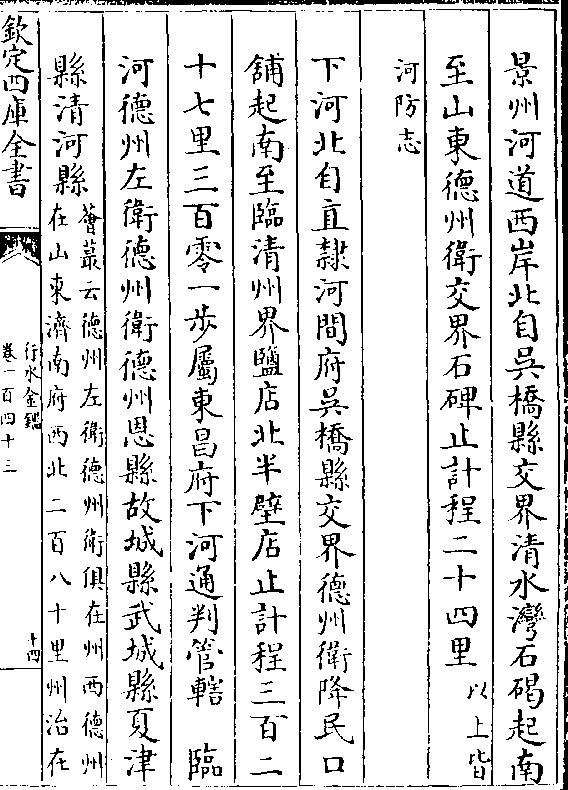 景州河道西岸北自吳橋縣交界清水灣石碣起南
至山東德州衛交界石碑止計程二十四里以上皆
河防志
下河北自直隸河間府吳橋縣交界德州衛降民口
舖起南至臨清州界鹽店北半壁店止計程三百二
十七里三百零一步屬東昌府下河通判管轄　臨
河德州左衛德州衛德州恩縣故城縣武城縣夏津
縣清河縣薈蕞云德州左衛德州衛俱在州西德州
在山東濟南府西北二百八十里州治在
欽定四庫全書
行水金鑑
卷一百四十三
十四